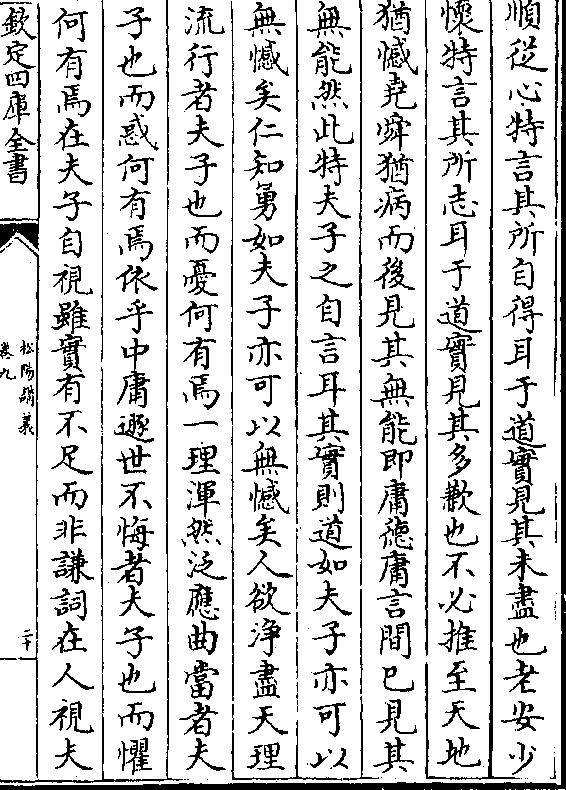 順從心特言其所自得耳于道實見其未盡也老安少
懷特言其所志耳于道實見其多歉也不必推至天地
猶憾堯舜猶病而後見其無能即庸德庸言間已見其
無能然此特夫子之自言耳其實則道如夫子亦可以
無憾矣仁知勇如夫子亦可以無憾矣人欲浄盡天理
流行者夫子也而憂何有焉一理渾然泛應曲當者夫
子也而惑何有焉依乎中庸遯世不悔者夫子也而懼
何有焉在夫子自視雖實有不足而非謙詞在人視夫
欽定四庫全書
松陽講義
卷九
二十